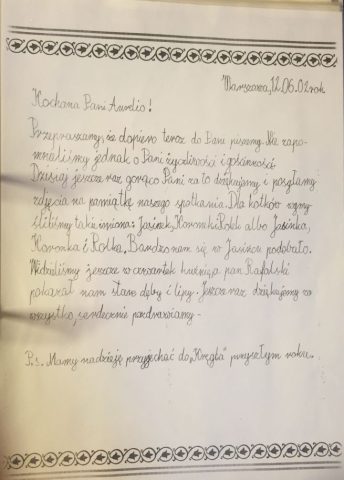 Warszawa, 12.06.02 rok
Kochana Pani Aurelio!
Przepraszamy, że dopiero teraz do Pani piszemy. Nie zapo-
mnieliśmy jednak o Pani życzliwości i gościnności.
Dzisiaj jeszcze raz gorąco Pani za to dziękujemy i posyłamy
zdjęcia na pamiątkę naszego spotkania. Dla kotków wymy-
śliliśmy takie imiona: Jasinek, Koronek i Rolek albo Jasinka,
Koronka i Rolka. Bardzo nam się w Jasińcu podobało.
Widzieliśmy jeszcze w czwartek pan Rafalski
pokazał nam stare dęby i lipy. Jeszcze raz dziękujemy za
wszystko, serdecznie pozdrawiamy -
P.s. Mamy nadzieję przyjechać do przyszłym roku.